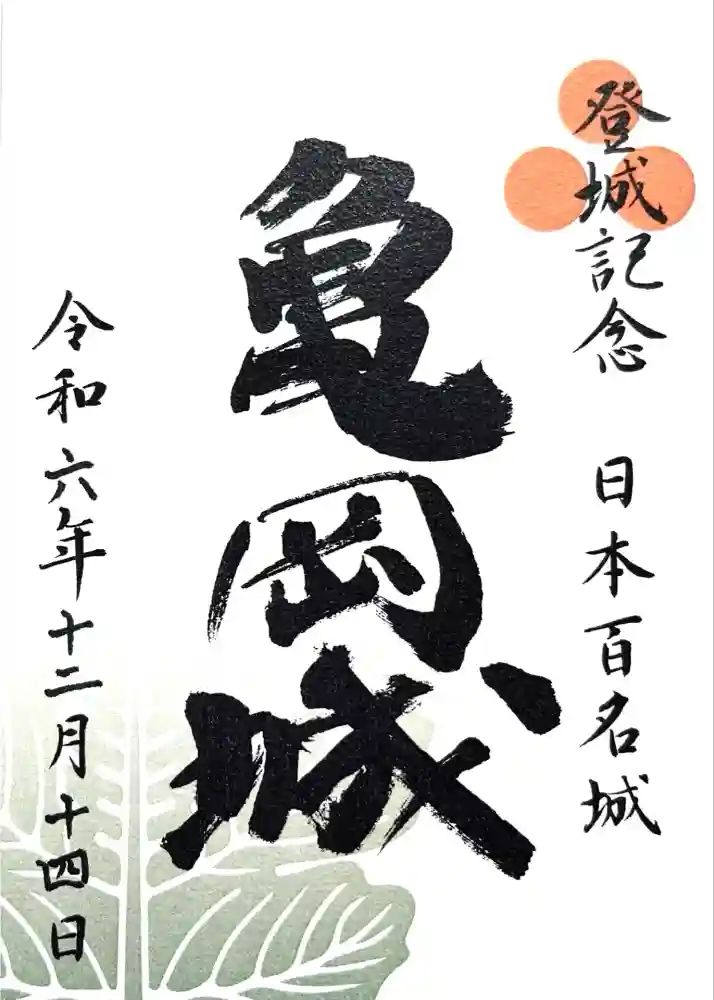 登城記念 日本百名城
亀岡城
令和六年十二月十四日